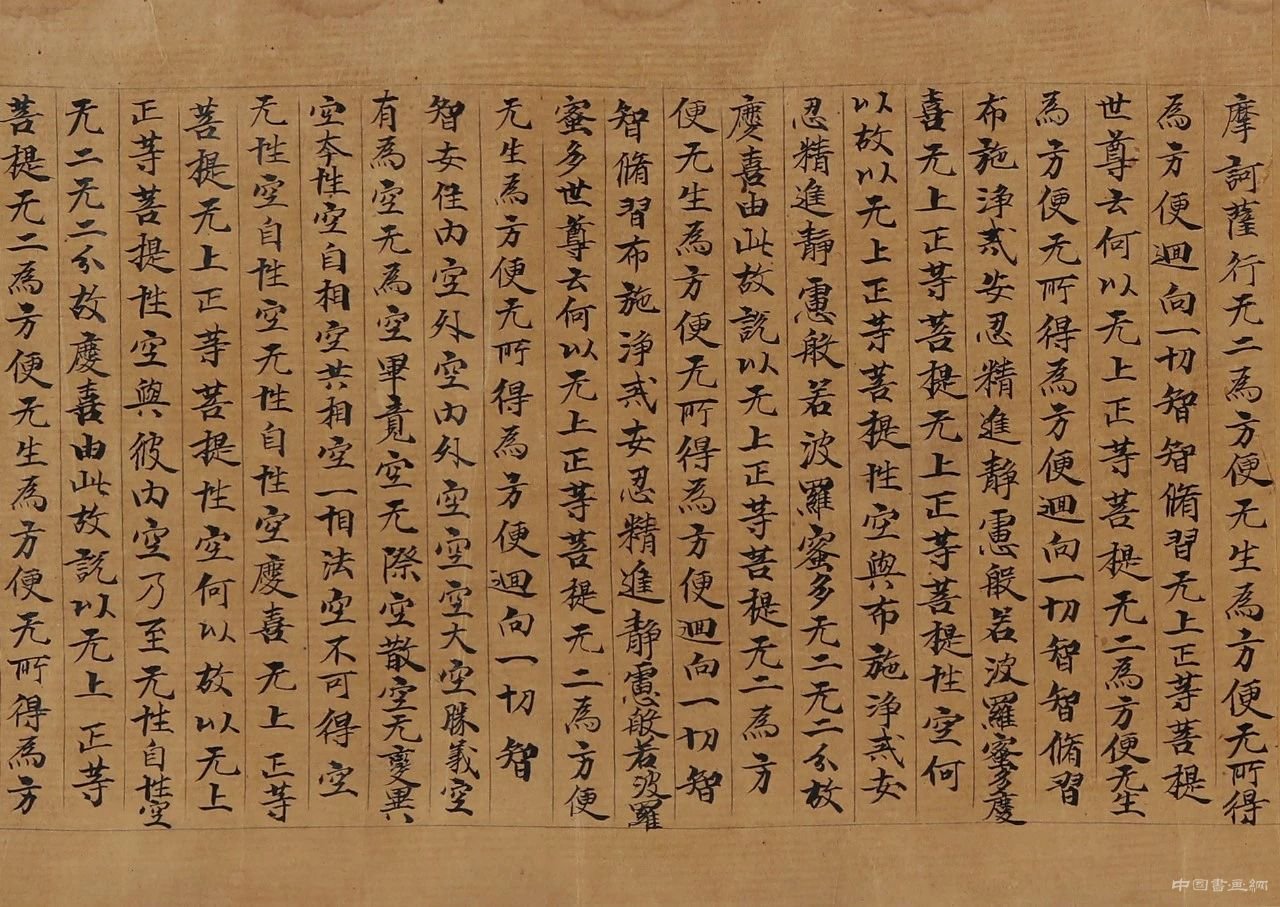 摩訶薩行无二為方便无生為方便无所得
為方便迴向一切智智脩習无上正等菩提
世尊云何以无上正等菩提无二為方便无生
為方便无所得為方便迴向一切智智脩習
布施淨戒安忍精進靜慮般若波羅蜜多慶
喜无上正等菩提无上正等菩提性空何
以故以无上正等菩提性空與布施淨戒安
忍精進靜慮般若波羅蜜多无二无二分故
慶喜由此故說以无上正等菩提无二為方
便无生為方便无所得為方便迴向一切智
智脩習布施淨戒安忍精進靜慮般若波羅
蜜多世尊云何以无上正等菩提无二為方便
无生為方便无所得為方便迴向一切智
智安住內空外空內外空空空大空勝義空
有為空无為空畢竟空无際空散空无變異
空本性空自相空共相空一相法空不可得空
无性空自性空无性自性空慶喜无上正等
菩提无上正等菩提性空何以故以无上
正等菩提性空與彼內空乃至无性自性空
无二无二分故慶喜由此故說以无上正等
菩提无二為方便无生為方便无所得為方
中国書画網